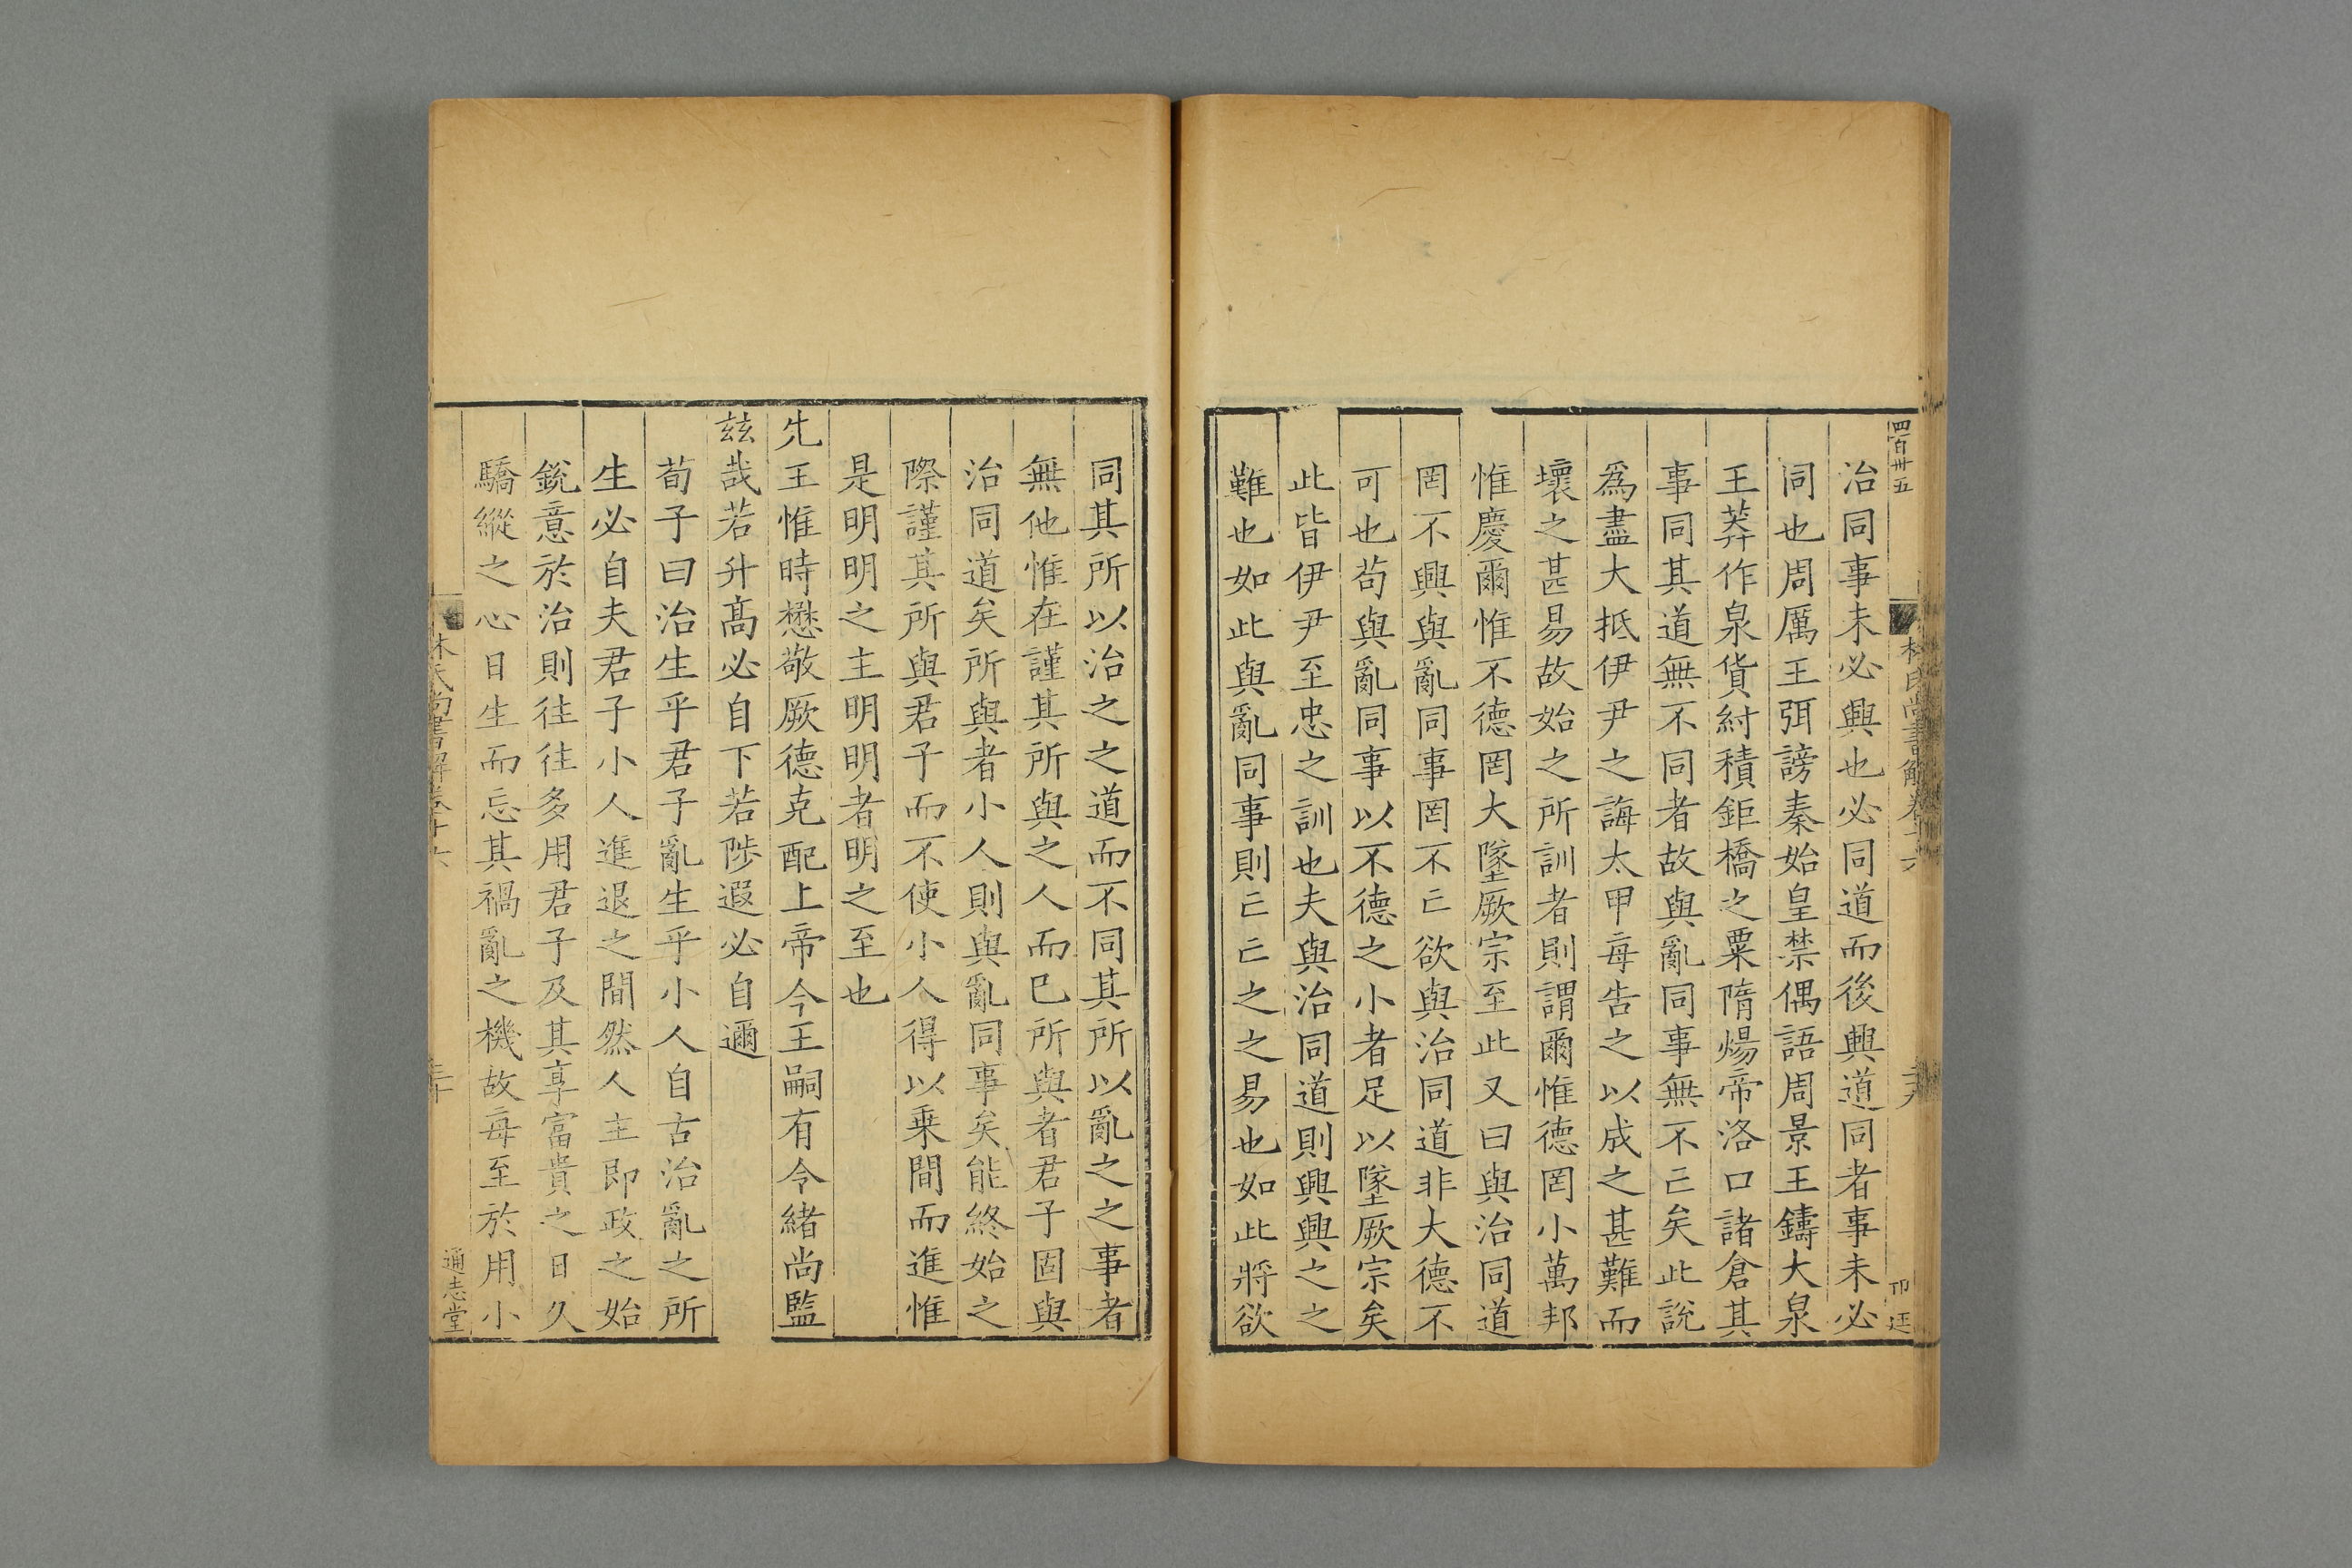 四百卅五
林氏尚書解卷十六
治同事未必興也必同道而後興道同者事未必
同也周厲王弭謗秦始皇禁偶語周景王鑄大泉
王莽作泉貨紂積鉅橋之粟隋煬帝洛口諸倉其
事同其道無不同者故與亂同事無不亡矣此說
爲盡大抵伊尹之誨太甲每告之以成之甚難而
壞之甚易故始之所訓者則謂爾惟德罔小萬邦
惟慶爾惟不德罔大墜厥宗至此又曰與治同道
罔不興與亂同事罔不亡欲與治同道非大德不
可也苟與亂同事以不德之小者足以墜厥宗矣
此皆伊尹至忠之訓也夫與治同道則興興之之
難也如此與亂同事則亡亡之之易也如此將欲
同其所以治之之道而不同其所以亂之之事者
無他惟在謹其所與之人而已所與者君子固與
治同道矣所與者小人則與亂同事矣能終始之
際謹其所與君子而不使小人得以乗間而進惟
是明明之主明明者明之至也
先王惟時懋敬厥德克配上帝今王嗣有令緒尚監
兹哉若升高必自下若陟遐必自邇
荀子曰治生乎君子亂生乎小人自古治亂之所
生必自夫君子小人進退之間然人主即政之始
銳意於治則往往多用君子及其享富貴之日久
驕縱之心日生而忘其禍亂之機故每至於用小
林氏尚書解卷十六
三十
通志堂